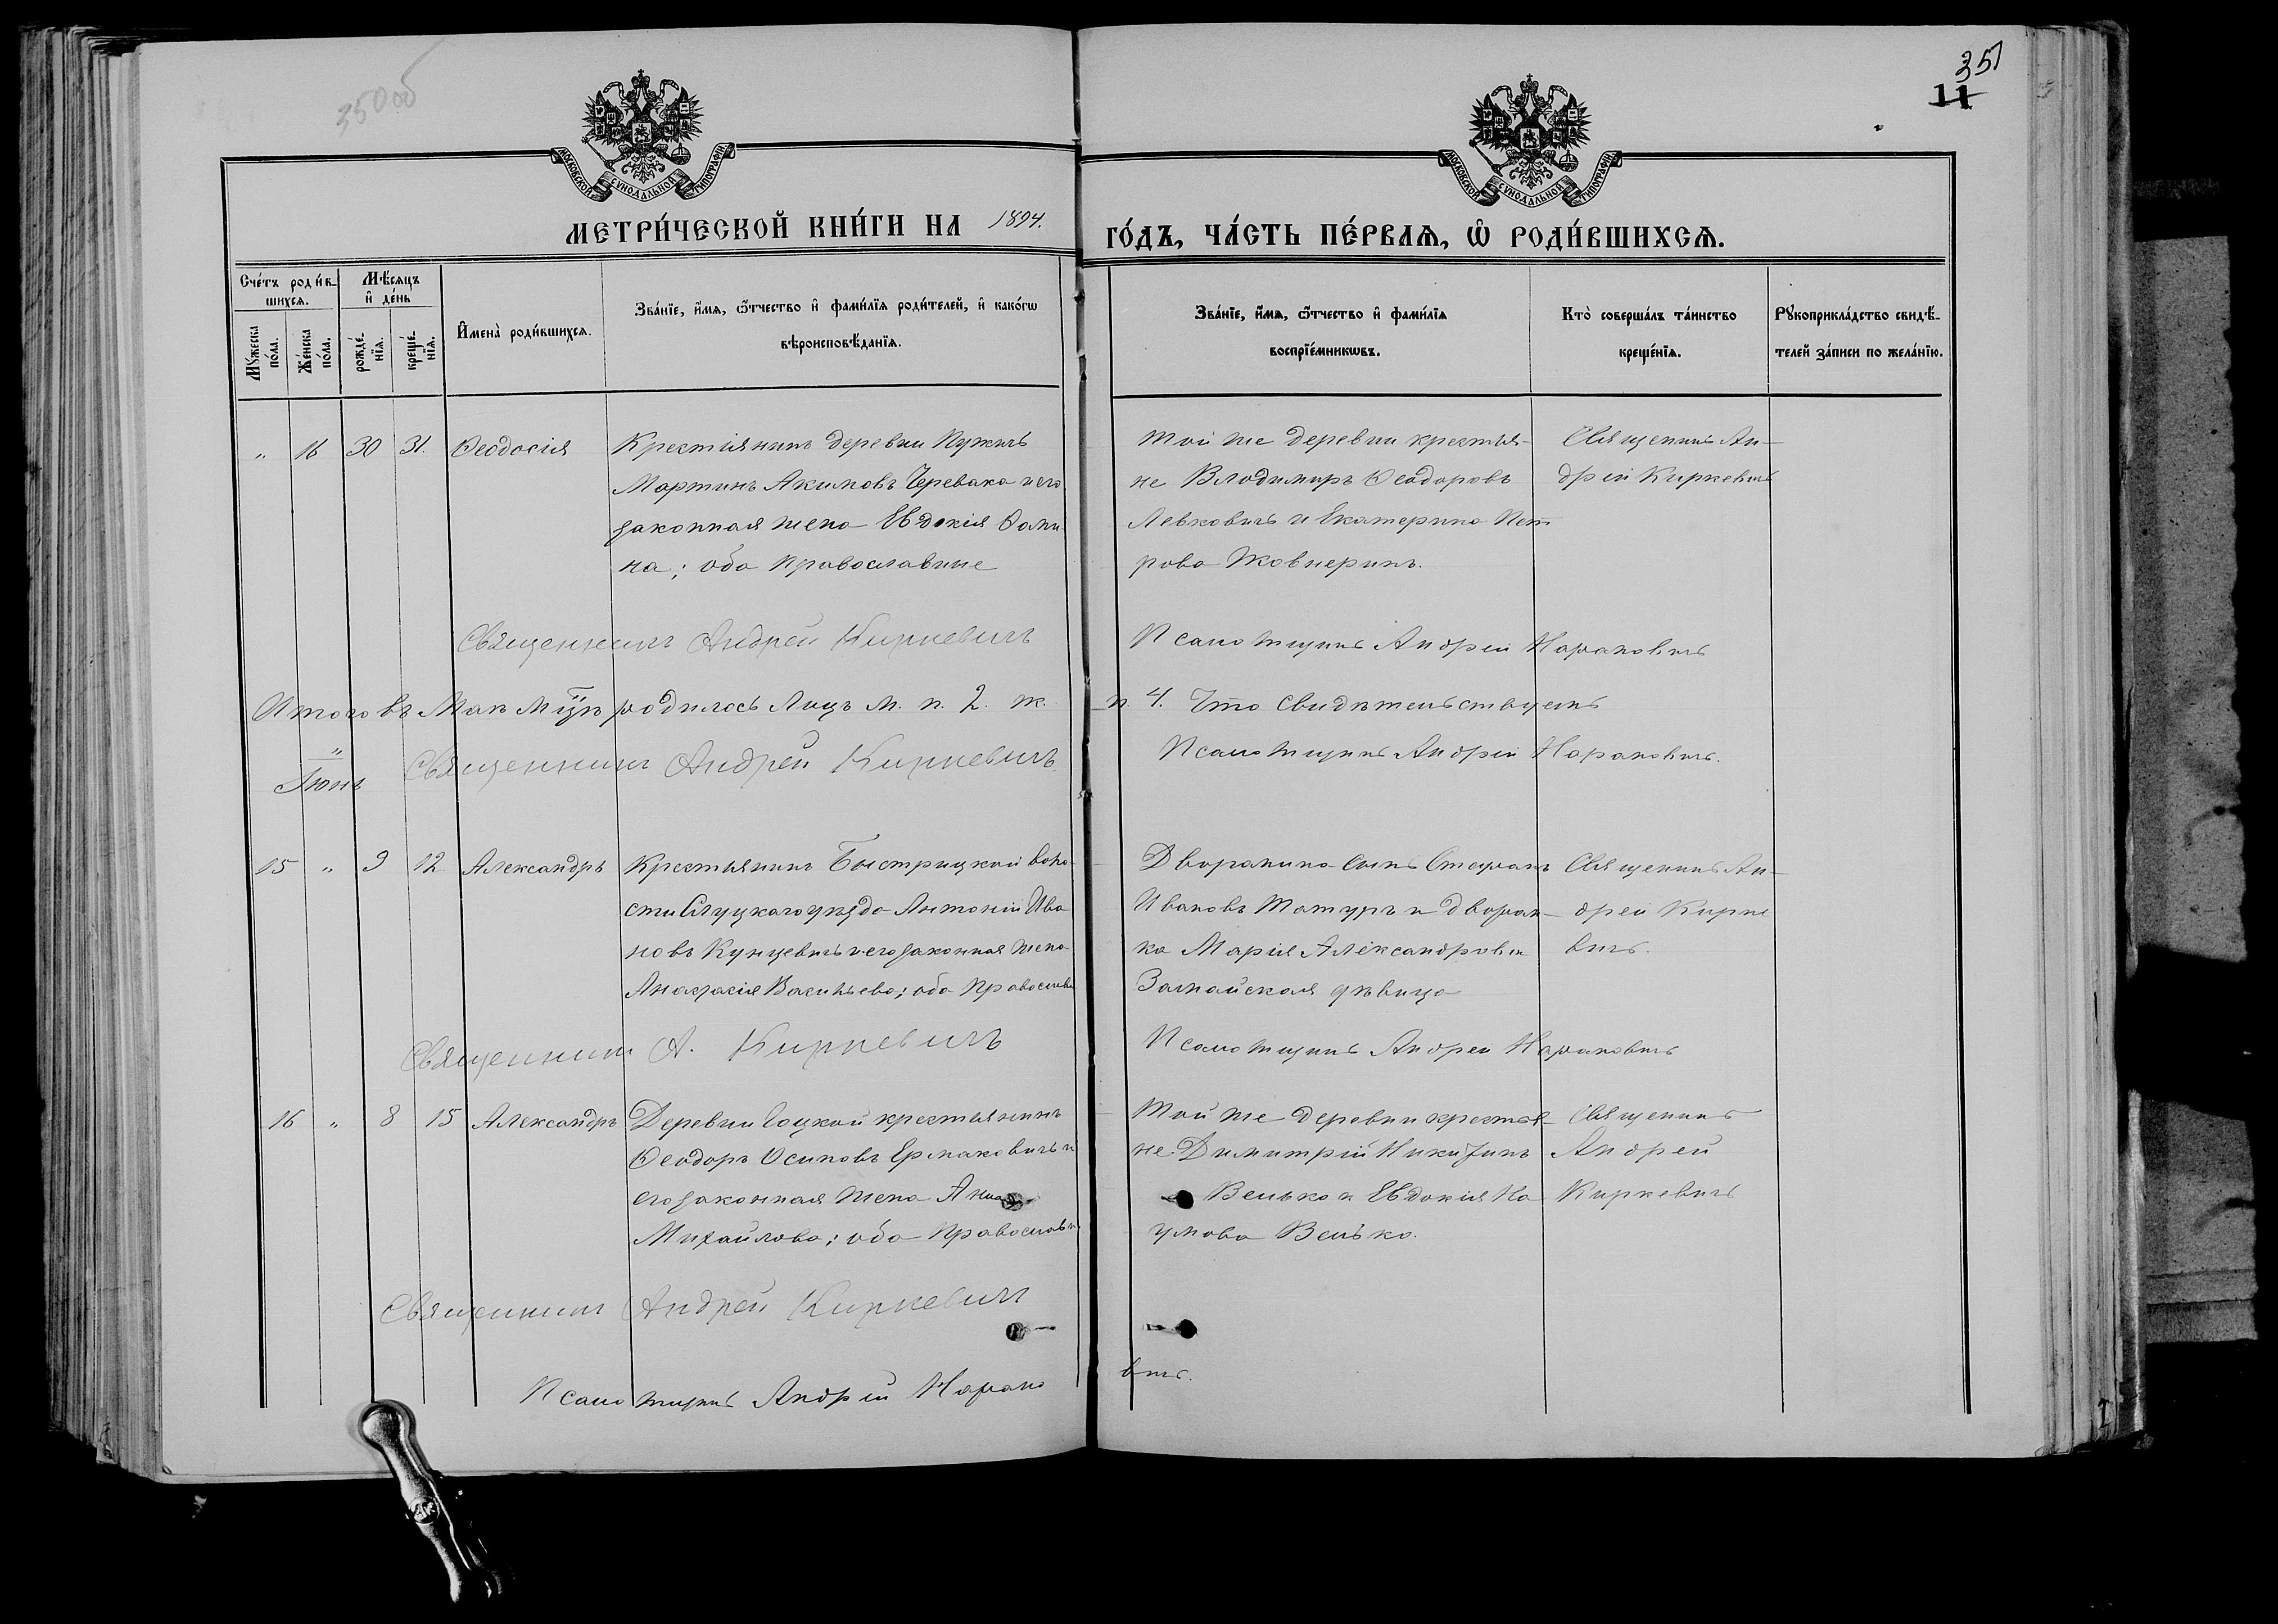 350об
351
11
МОСКОВСКОЙ СѴНОДАЛЬНОЙ ТИПОГРАФІИ
МОСКОВСКОЙ СѴНОДАЛЬНОЙ ТИПОГРАФІИ
МЕТРИ́ЧЕСКОЙ КНИ́ГИ НА 1894. ГО́ДЪ, ЧА́СТЬ ПЕ́РВАѦ, Ѡ҆ РОДИ́ВШИХСѦ.
Сче́тъ роди́в-
шихсѧ.
Мѣ́сѧцъ
и҆ де́нь
Мꙋ́жеска
по́ла.
Же́нска
по́ла.
рожде́-
нїѧ.
креще́-
нїѧ.
И҆мена̀ роди́вшихсѧ.
Зва́нїе, и҆́мѧ, ѻ҆́тчество и҆ фами́лїѧ роди́телей, и҆ како́гѡ
вѣроисповѣ́данїѧ.
Зва́нїе, и҆́мѧ, ѻ҆́тчество и҆ фами́лїѧ
воспрїе́мникѡвъ.
Кто̀ соверша́лъ та́инство
креще́нїѧ.
Рꙋкоприкла́дство свидѣ́-
телей за́писи по жела́нїю.
„ 16 30 31. Ѳеодосія Крестьянинъ деревни Пужичъ
Мартинъ Акимовъ Черевако и его
законная жена Евдокія Ѳоми
на; оба православные
Той же деревни крестья-
не Владимиръ Ѳеодоровъ
Левковичъ и Екатерина Пет
рова Жовнерикъ.
Священникъ Ан-
дрей Киркевичъ
Священникъ Андрей Киркевичъ
Псаломщикъ Андрей
Итого въ Маѣ мцѣ родилось лицъ м. п. 2. ж. п 4. Что свидѣтельствуемъ
Священникъ Андрей Киркевичъ
Псаломщикъ Андрей
Іюнь
15 „ 9 12 Александръ Крестьянинъ Быстрицкой воло-
сти Слуцкаго уѣзда Антоній Ива
новъ Кунцевичъ и его законная жена
Анастасія Васильева; оба православн
Дворянина сынъ Стефанъ
Ивановъ Татуръ и дворян-
ка Марія Александрова
дѣвица
Священникъ Ан-
дрей Кирке
вичъ.
Священникъ А. Киркевичъ
Псаломщикъ Андрей
16 „ 8 15 Александръ Деревни крестьянинъ
Ѳеодоръ Осиповъ Ермаковичъ и
его законная жена Анна
Михайлова; оба православн.
Той же деревни крестья-
не Димитрій Никитинъ
Велько и Евдокія На
умова Велько.
Священникъ
Андрей
Киркевичъ
Священникъ Андрей Киркевичъ
Псаломщикъ Андрей
вичъ.